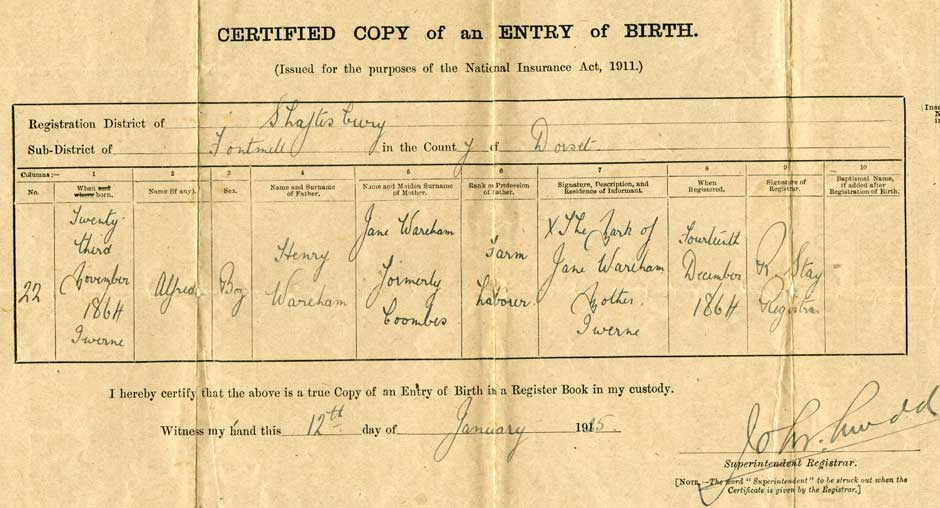 CERTIFIED COPY of an ENTRY of BIRTH.
(Issued for the purposes of the National Insurance Act, 1911.)
Registration District of Shaftesbury
Sub-District of Fontmell in the County of Dorset
Columns:— 1 2 3 4 5 6 7 8 9 10
No. When and where born. Name (if any). Sex. Name and Surname of Father. Name and Maiden Surname of Mother. Rank or Profession of Father. Signature, Description, and Residence of Informant. When Registered. Signature of Registrar. Baptismal Name, if added after Registration of Birth.
22
Twenty
third
November
1864
Iwerne
Alfred
Boy
Henry
Wareham
Jane Wareham
formerly
Coombes
Farm
Laborer
X The Mark of
Jane Wareham
Mother
Iwerne
Fourteenth
December
1864
R Stay
Registrar
I hereby certify that the above is a true Copy of an Entry of Birth in a Register Book in my custody.
Witness my hand this 12th day of January 1915.
Superintendent Registrar.
[NOTE.—The word "Superintendent" to be struck out when the
Certificate is given by the Registrar.]